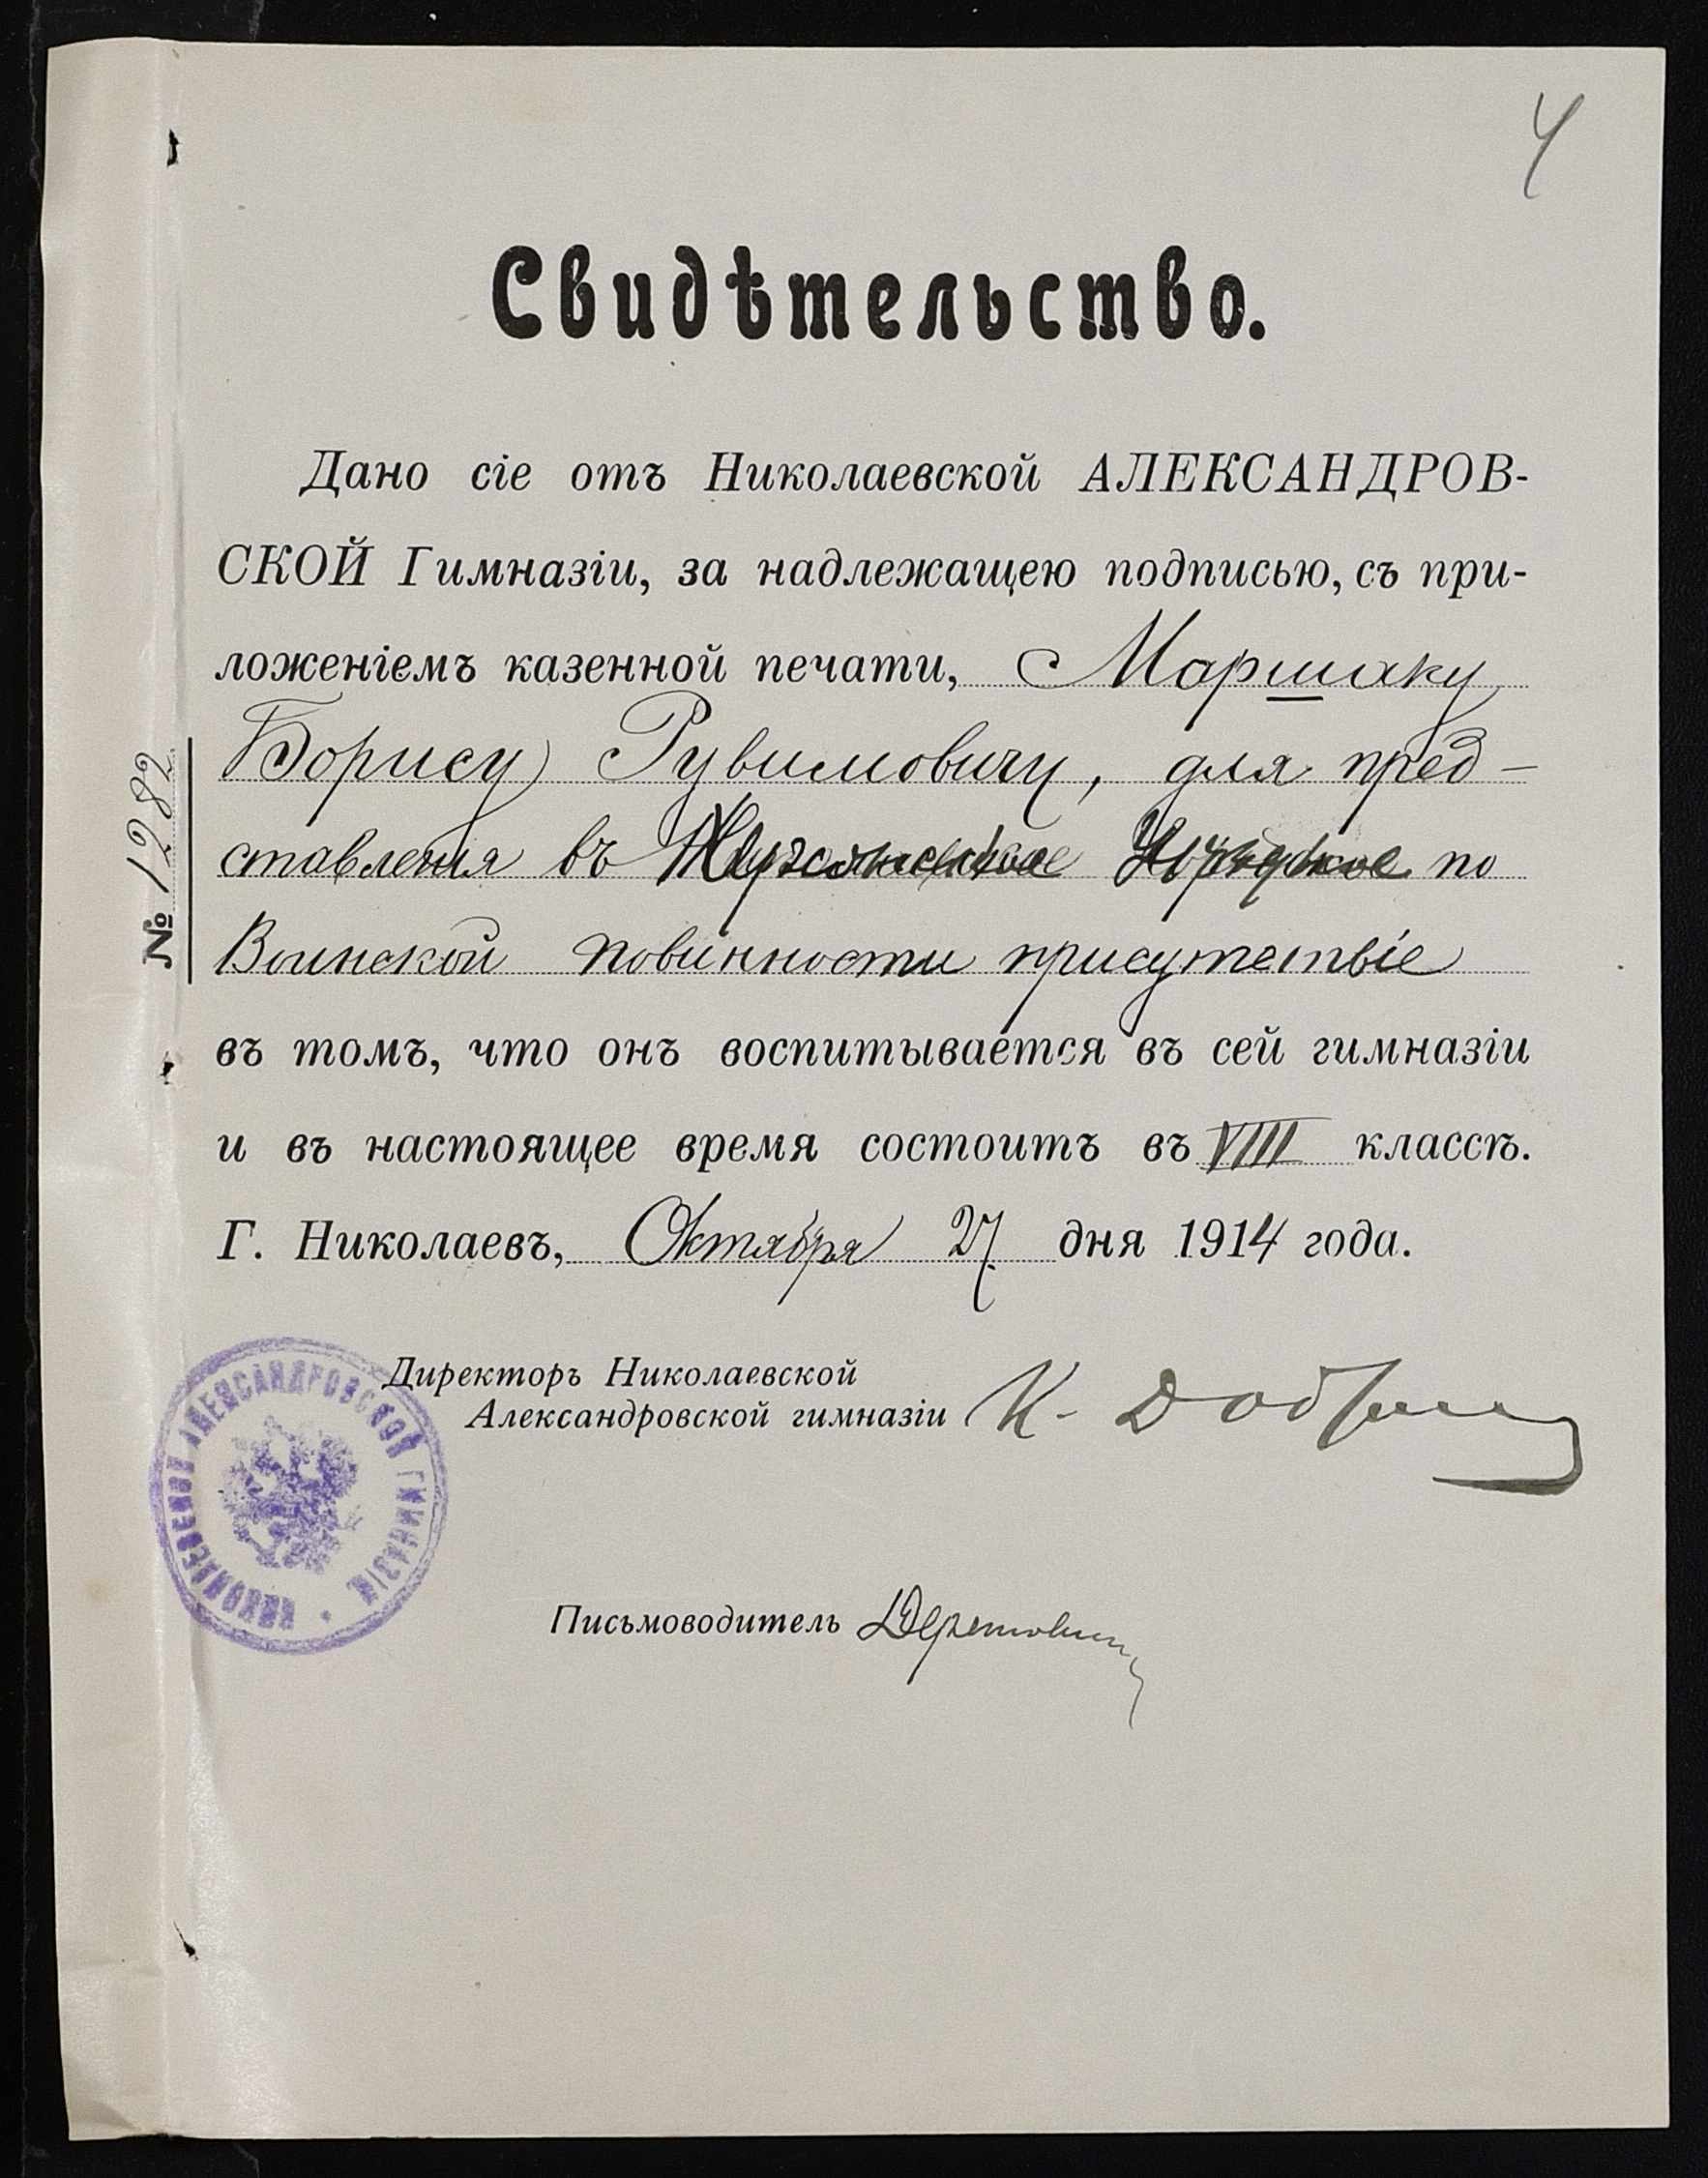 4
Свидѣтельство.
Дано сіе отъ Николаевской АЛЕКСАНДРОВ-
СКОЙ Гимназіи, за надлежащею подписью, съ при-
ложеніемъ казенной печати, Маршаку
Борису Рувимовичу, для пред-
ставленія въ по
Воинской повинности присутствіе
въ томъ, что онъ воспитывается въ сей гимназіи
и въ настоящее время состоитъ въ VIII классѣ.
Г. Николаевъ, Октября 27 дня 1914 года.
№ 1282
Директоръ Николаевской
Александровской гимназіи К.
НИКОЛАЕВСКОЙ АЛЕКСАНДРОВСКОЙ ГИМНАЗІИ
Письмоводитель